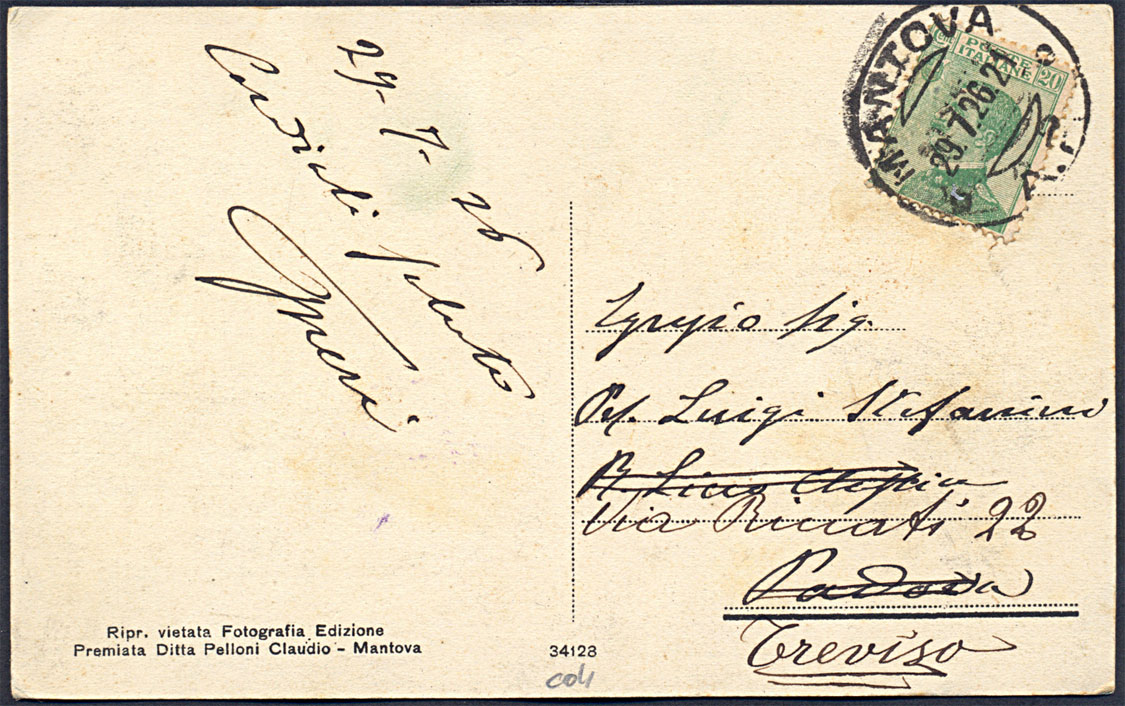 29-7-26
Cordiali saluti
MANTOVA
29.7.26.21
POSTE
ITALIANE
20
Egregio Sig.
Luigi Stefanini
Via Riccati 22
Padova
Treviso
Ripr. vietata Fotografia Edizione
Premiata Ditta Pelloni Claudio - Mantova
34128